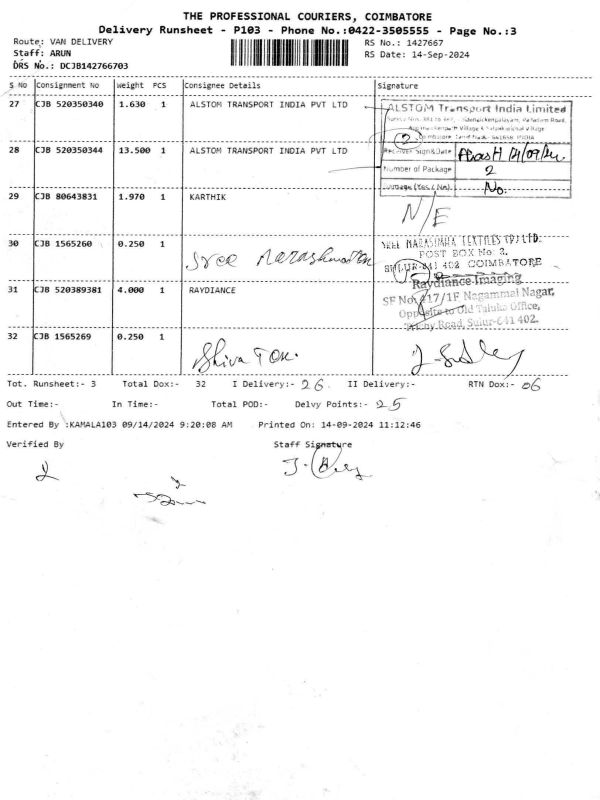 THE PROFESSIONAL COURIERS, COIMBATORE
Delivery Runsheet - P103 - Phone No.:0422-3505555 - Page No.:3
Route: VAN DELIVERY RS No.: 1427667
Staff: ARUN RS Date: 14-Sep-2024
DRS No.: DCJB142766703
S No Consignment No Weight PCS Consignee Details Signature
27 CJB 520350340 1.630 1 ALSTOM TRANSPORT INDIA PVT LTD
ALSTOM Transport India Limited
2
28 CJB 520350344 13.500 1 ALSTOM TRANSPORT INDIA PVT LTD
Receiver Sign&Date 14/09/24
Number of Package 2
Damage (Yes / No) No.
29 CJB 80643831 1.970 1 KARTHIK
N/E
30 CJB 1565260 0.250 1 Sree
SREE NARASIMHA TEXTILES (P) LTD.
POST BOX No: 2.
SULUR-641 402 COIMBATORE
31 CJB 520389381 4.000 1 RAYDIANCE
Raydiance Imaging
SF No. 417/1F Nagammal Nagar,
Opposite to Old Taluka Office,
Trichy Road, Sulur-641 402.
32 CJB 1565269 0.250 1
Shiva Tex.
Tot. Runsheet:- 3 Total Dox:- 32 I Delivery:- 26 II Delivery:- RTN Dox:- 06
Out Time:- In Time:- Total POD:- Delvy Points:- 25
Entered By :KAMALA103 09/14/2024 9:20:08 AM Printed On: 14-09-2024 11:12:46
Verified By Staff Signature